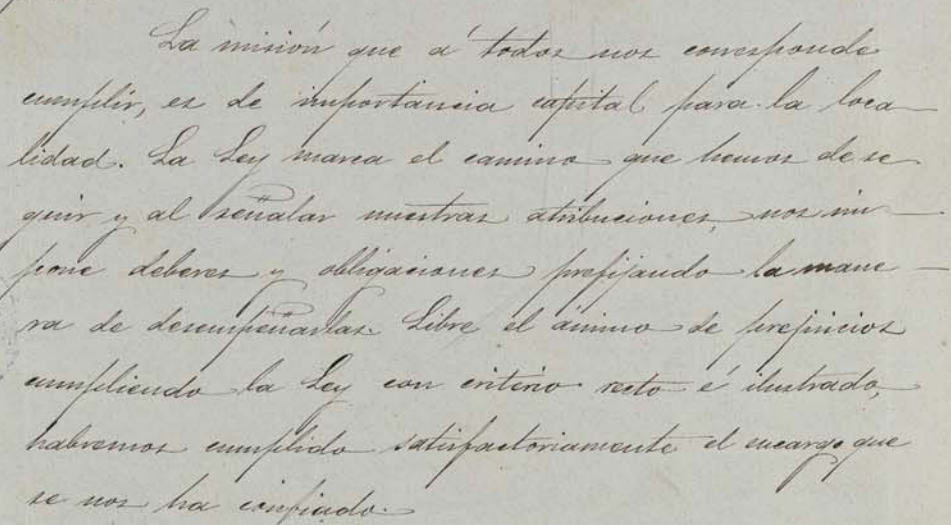 La misión que á todos nos corresponde
cumplir, es de importancia capital para la loca
lidad. La Ley marca el camino que hemos de se
guir y al señalar nuestras atribuciones, nos im
pone deberes y obligaciones prefijando la mane
ra de desempeñarlas. Libre el ánimo de prejuicios
cumpliendo la Ley con criterio recto é ilustrado,
habremos cumplido satisfactoriamente el encargo que
se nos ha confiado.